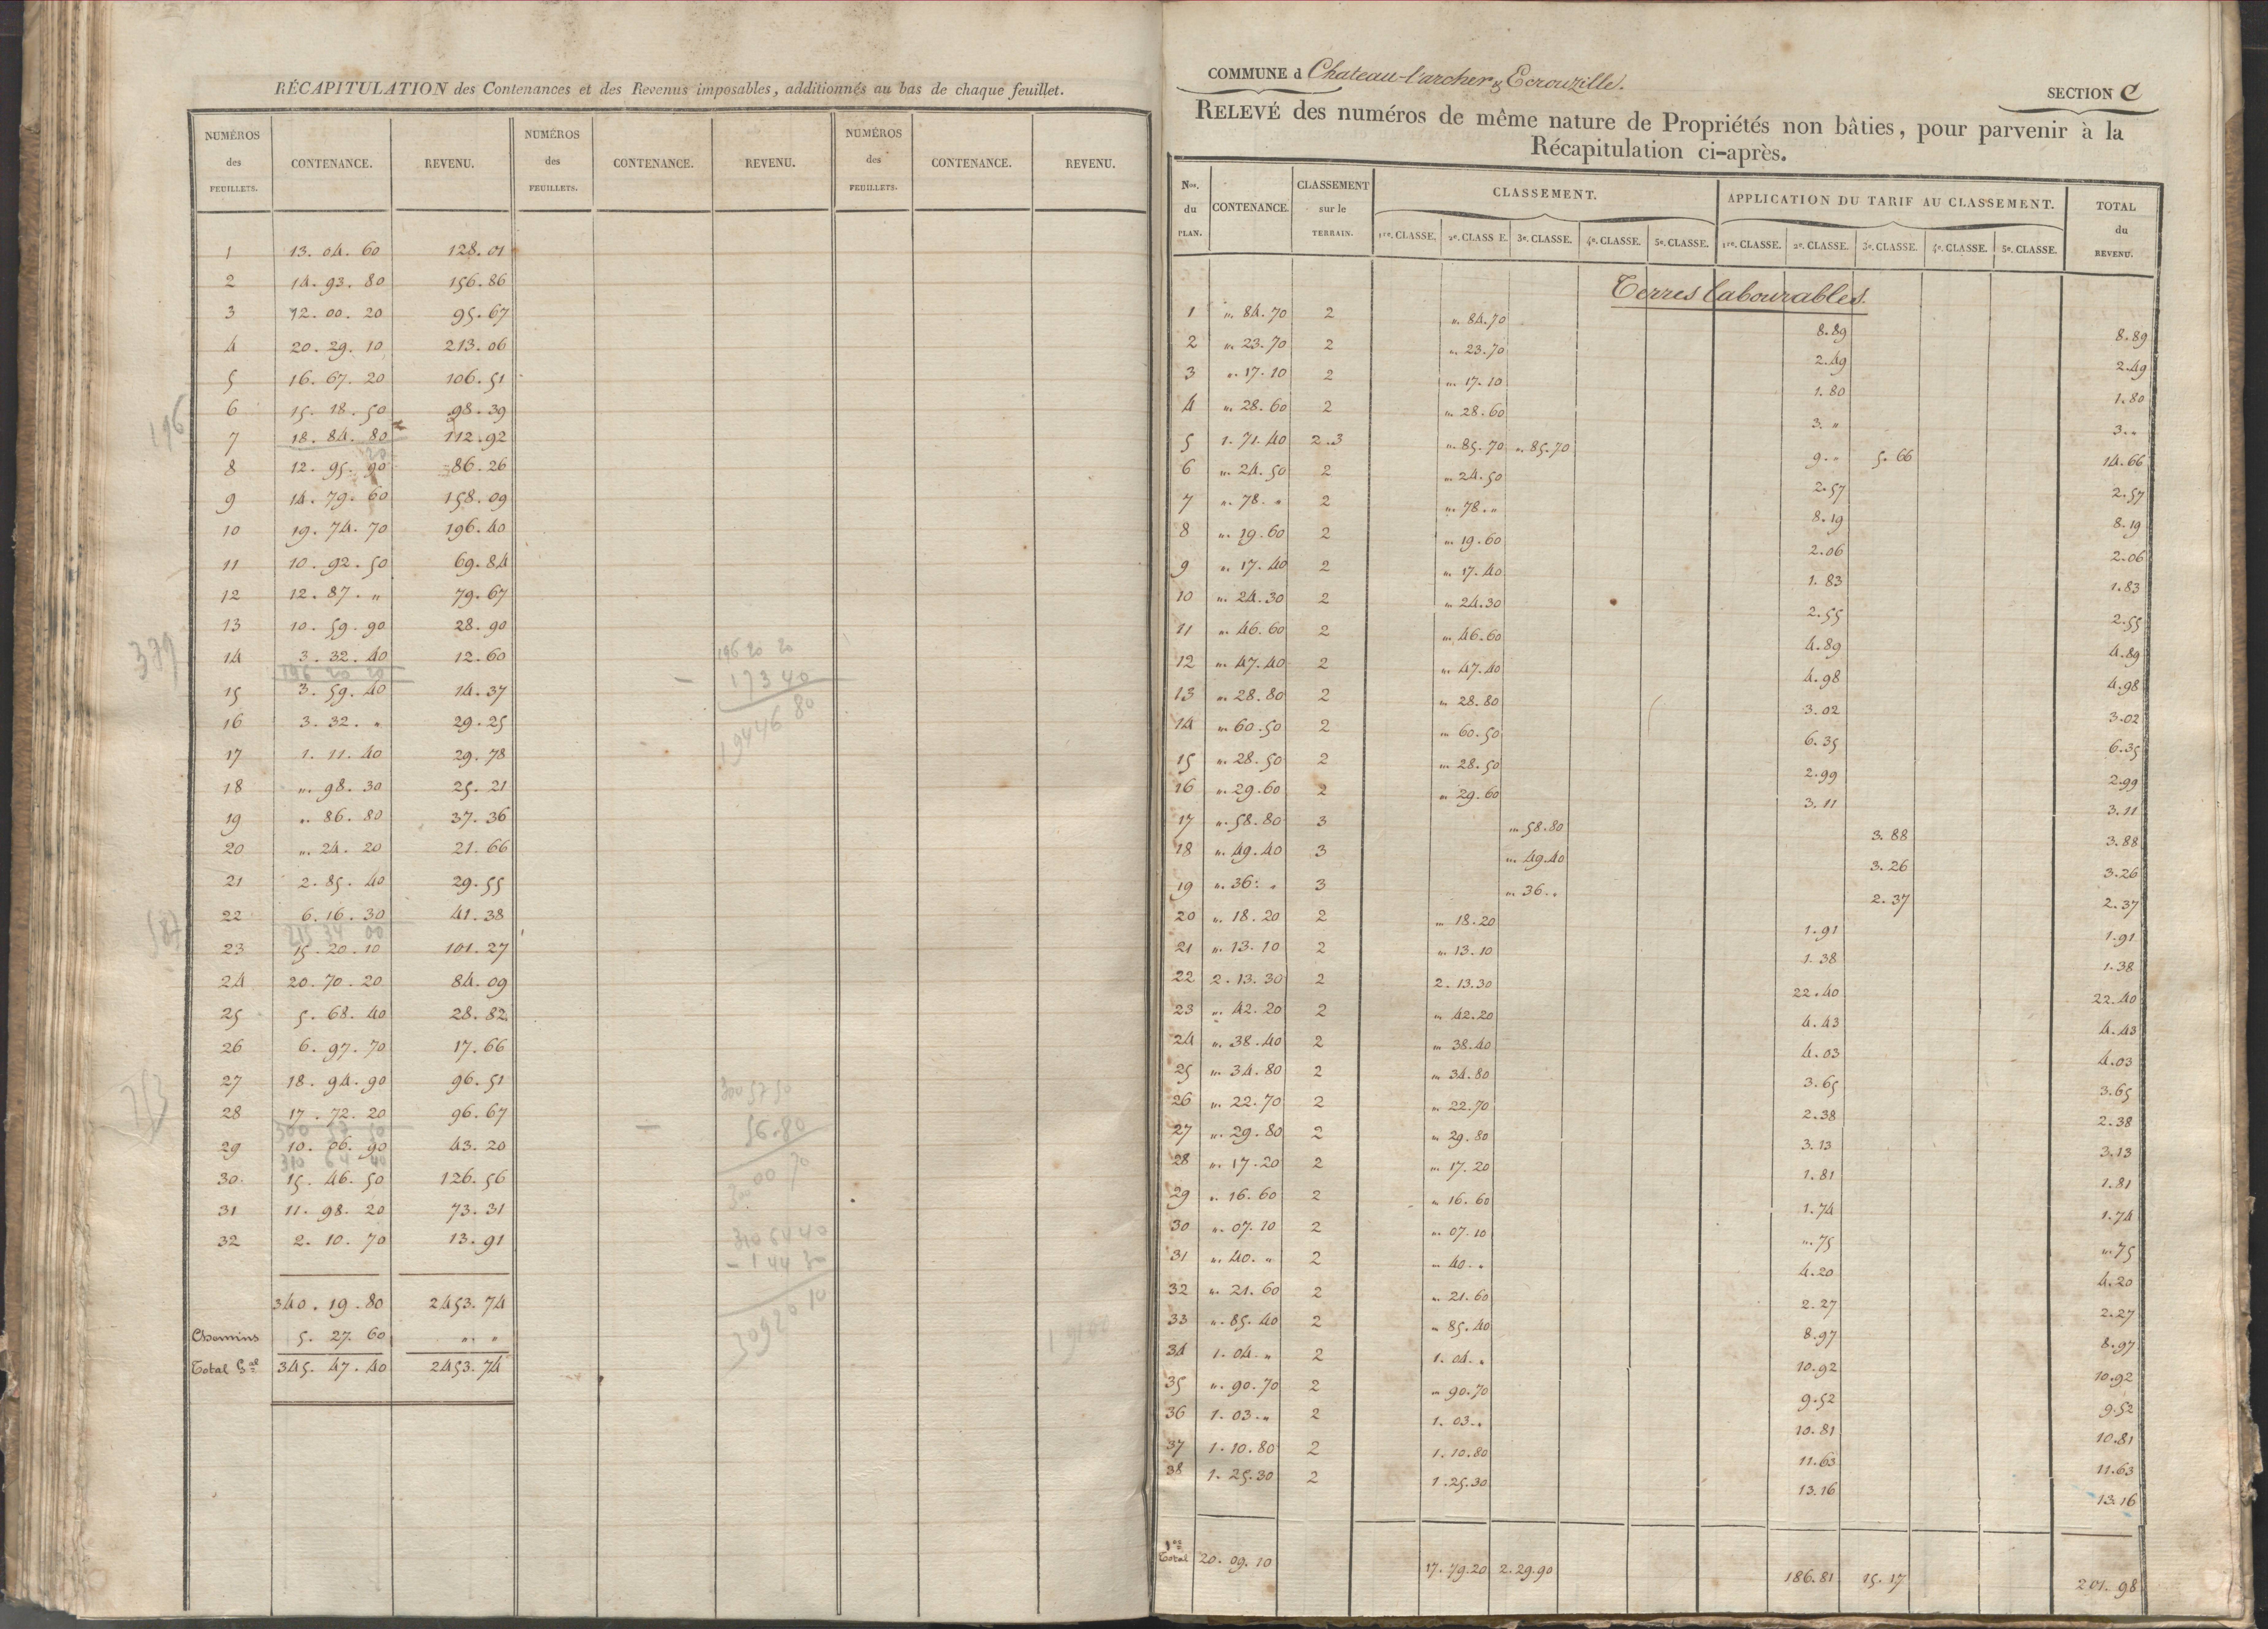 RÉCAPITULATION des Contenances et des Revenus imposables, additionnés au bas de chaque feuillet.
NUMÉROS des FEUILLETS. CONTENANCE. REVENU. NUMÉROS des FEUILLETS. CONTENANCE. REVENU. NUMÉROS des FEUILLETS. CONTENANCE. REVENU.
1 13. 04. 60 128. 01
2 14. 93. 80 156. 86
3 12. 00. 20 95. 67
4 20. 29. 10 213. 06
5 16. 67. 20 106. 51
6 15. 18. 50 98. 39
196
7 18. 84. 80 112. 92
20
8 12. 95. 90 86. 26
9 14. 79. 60 158. 09
10 19. 74. 70 196. 40
11 10. 92. 50 69. 84
12 12. 87. " 79. 67
13 10. 59. 90 28. 90
14 3. 32. 40 12. 60
196 20 20
196 20 20
- 173 40
15 3. 59. 40 14. 37
19446 80
16 3. 32. " 29. 25
17 1. 11. 40 29. 78
18 ". 98. 30 25. 21
19 ". 86. 80 37. 36
20 ". 24. 20 21. 66
21 2. 85. 40 29. 55
22 6. 16. 30 41. 38
215 34 00
23 15. 20. 10 101. 27
24 20. 70. 20 84. 09
25 5. 68. 40 28. 82
26 6. 97. 70 17. 66
27 18. 94. 90 96. 51
300 57 50
28 17. 72. 20 96. 67
300 57 50
- 56.80
29 10. 06. 90 43. 20
310 64 40
300 00 70
30 15. 46. 50 126. 56
31 11. 98. 20 73. 31
32 2. 10. 70 13. 91
310 64 40
- 1 44 30
30920 10
340. 19. 80 2453. 74
Chemins 5. 27. 60 ". "
Total Gal 345. 47. 40 2453. 74
COMMUNE d Chateau-l'archer & Ecrouzille.
SECTION C
RELEVÉ des numéros de même nature de Propriétés non bâties, pour parvenir à la
Récapitulation ci-après.
Nos. du PLAN. CONTENANCE. CLASSEMENT sur le TERRAIN. CLASSEMENT. APPLICATION DU TARIF AU CLASSEMENT. TOTAL du REVENU.
1re. CLASSE. 2e. CLASSE. 3e. CLASSE. 4e. CLASSE. 5e. CLASSE. 1re. CLASSE. 2e. CLASSE. 3e. CLASSE. 4e. CLASSE. 5e. CLASSE.
Terres labourables.
1 ". 84. 70 2 ". 84. 70 8. 89 8. 89
2 ". 23. 70 2 ". 23. 70 2. 49 2. 49
3 ". 17. 10 2 ". 17. 10 1. 80 1. 80
4 ". 28. 60 2 ". 28. 60 3. " 3. "
5 1. 71. 40 2. 3 ". 85. 70 ". 85. 70 9. " 5. 66 14. 66
6 ". 24. 50 2 ". 24. 50 2. 57 2. 57
7 ". 78. " 2 ". 78. " 8. 19 8. 19
8 ". 19. 60 2 ". 19. 60 2. 06 2. 06
9 ". 17. 40 2 ". 17. 40 1. 83 1. 83
10 ". 24. 30 2 ". 24. 30 2. 55 2. 55
11 ". 46. 60 2 ". 46. 60 4. 89 4. 89
12 ". 47. 40 2 ". 47. 40 4. 98 4. 98
13 ". 28. 80 2 ". 28. 80 3. 02 3. 02
14 ". 60. 50 2 ". 60. 50 6. 35 6. 35
15 ". 28. 50 2 ". 28. 50 2. 99 2. 99
16 ". 29. 60 2 ". 29. 60 3. 11 3. 11
17 ". 58. 80 3 ". 58. 80 3. 88 3. 88
18 ". 49. 40 3 ". 49. 40 3. 26 3. 26
19 ". 36. " 3 ". 36. " 2. 37 2. 37
20 ". 18. 20 2 ". 18. 20 1. 91 1. 91
21 ". 13. 10 2 ". 13. 10 1. 38 1. 38
22 2. 13. 30 2 2. 13. 30 22. 40 22. 40
23 ". 42. 20 2 ". 42. 20 4. 43 4. 43
24 ". 38. 40 2 ". 38. 40 4. 03 4. 03
25 ". 34. 80 2 ". 34. 80 3. 65 3. 65
26 ". 22. 70 2 ". 22. 70 2. 38 2. 38
27 ". 29. 80 2 ". 29. 80 3. 13 3. 13
28 ". 17. 20 2 ". 17. 20 1. 81 1. 81
29 ". 16. 60 2 ". 16. 60 1. 74 1. 74
30 ". 07. 10 2 ". 07. 10 ". 75 ". 75
31 ". 40. " 2 ". 40. " 4. 20 4. 20
32 ". 21. 60 2 ". 21. 60 2. 27 2. 27
33 ". 85. 40 2 ". 85. 40 8. 97 8. 97
34 1. 04. " 2 1. 04. " 10. 92 10. 92
35 ". 90. 70 2 ". 90. 70 9. 52 9. 52
36 1. 03. " 2 1. 03. " 10. 81 10. 81
37 1. 10. 80 2 1. 10. 80 11. 63 11. 63
38 1. 25. 30 2 1. 25. 30 13. 16 13. 16
1er Total 20. 09. 10 17. 79. 20 2. 29. 90 186. 81 15. 17 201. 98